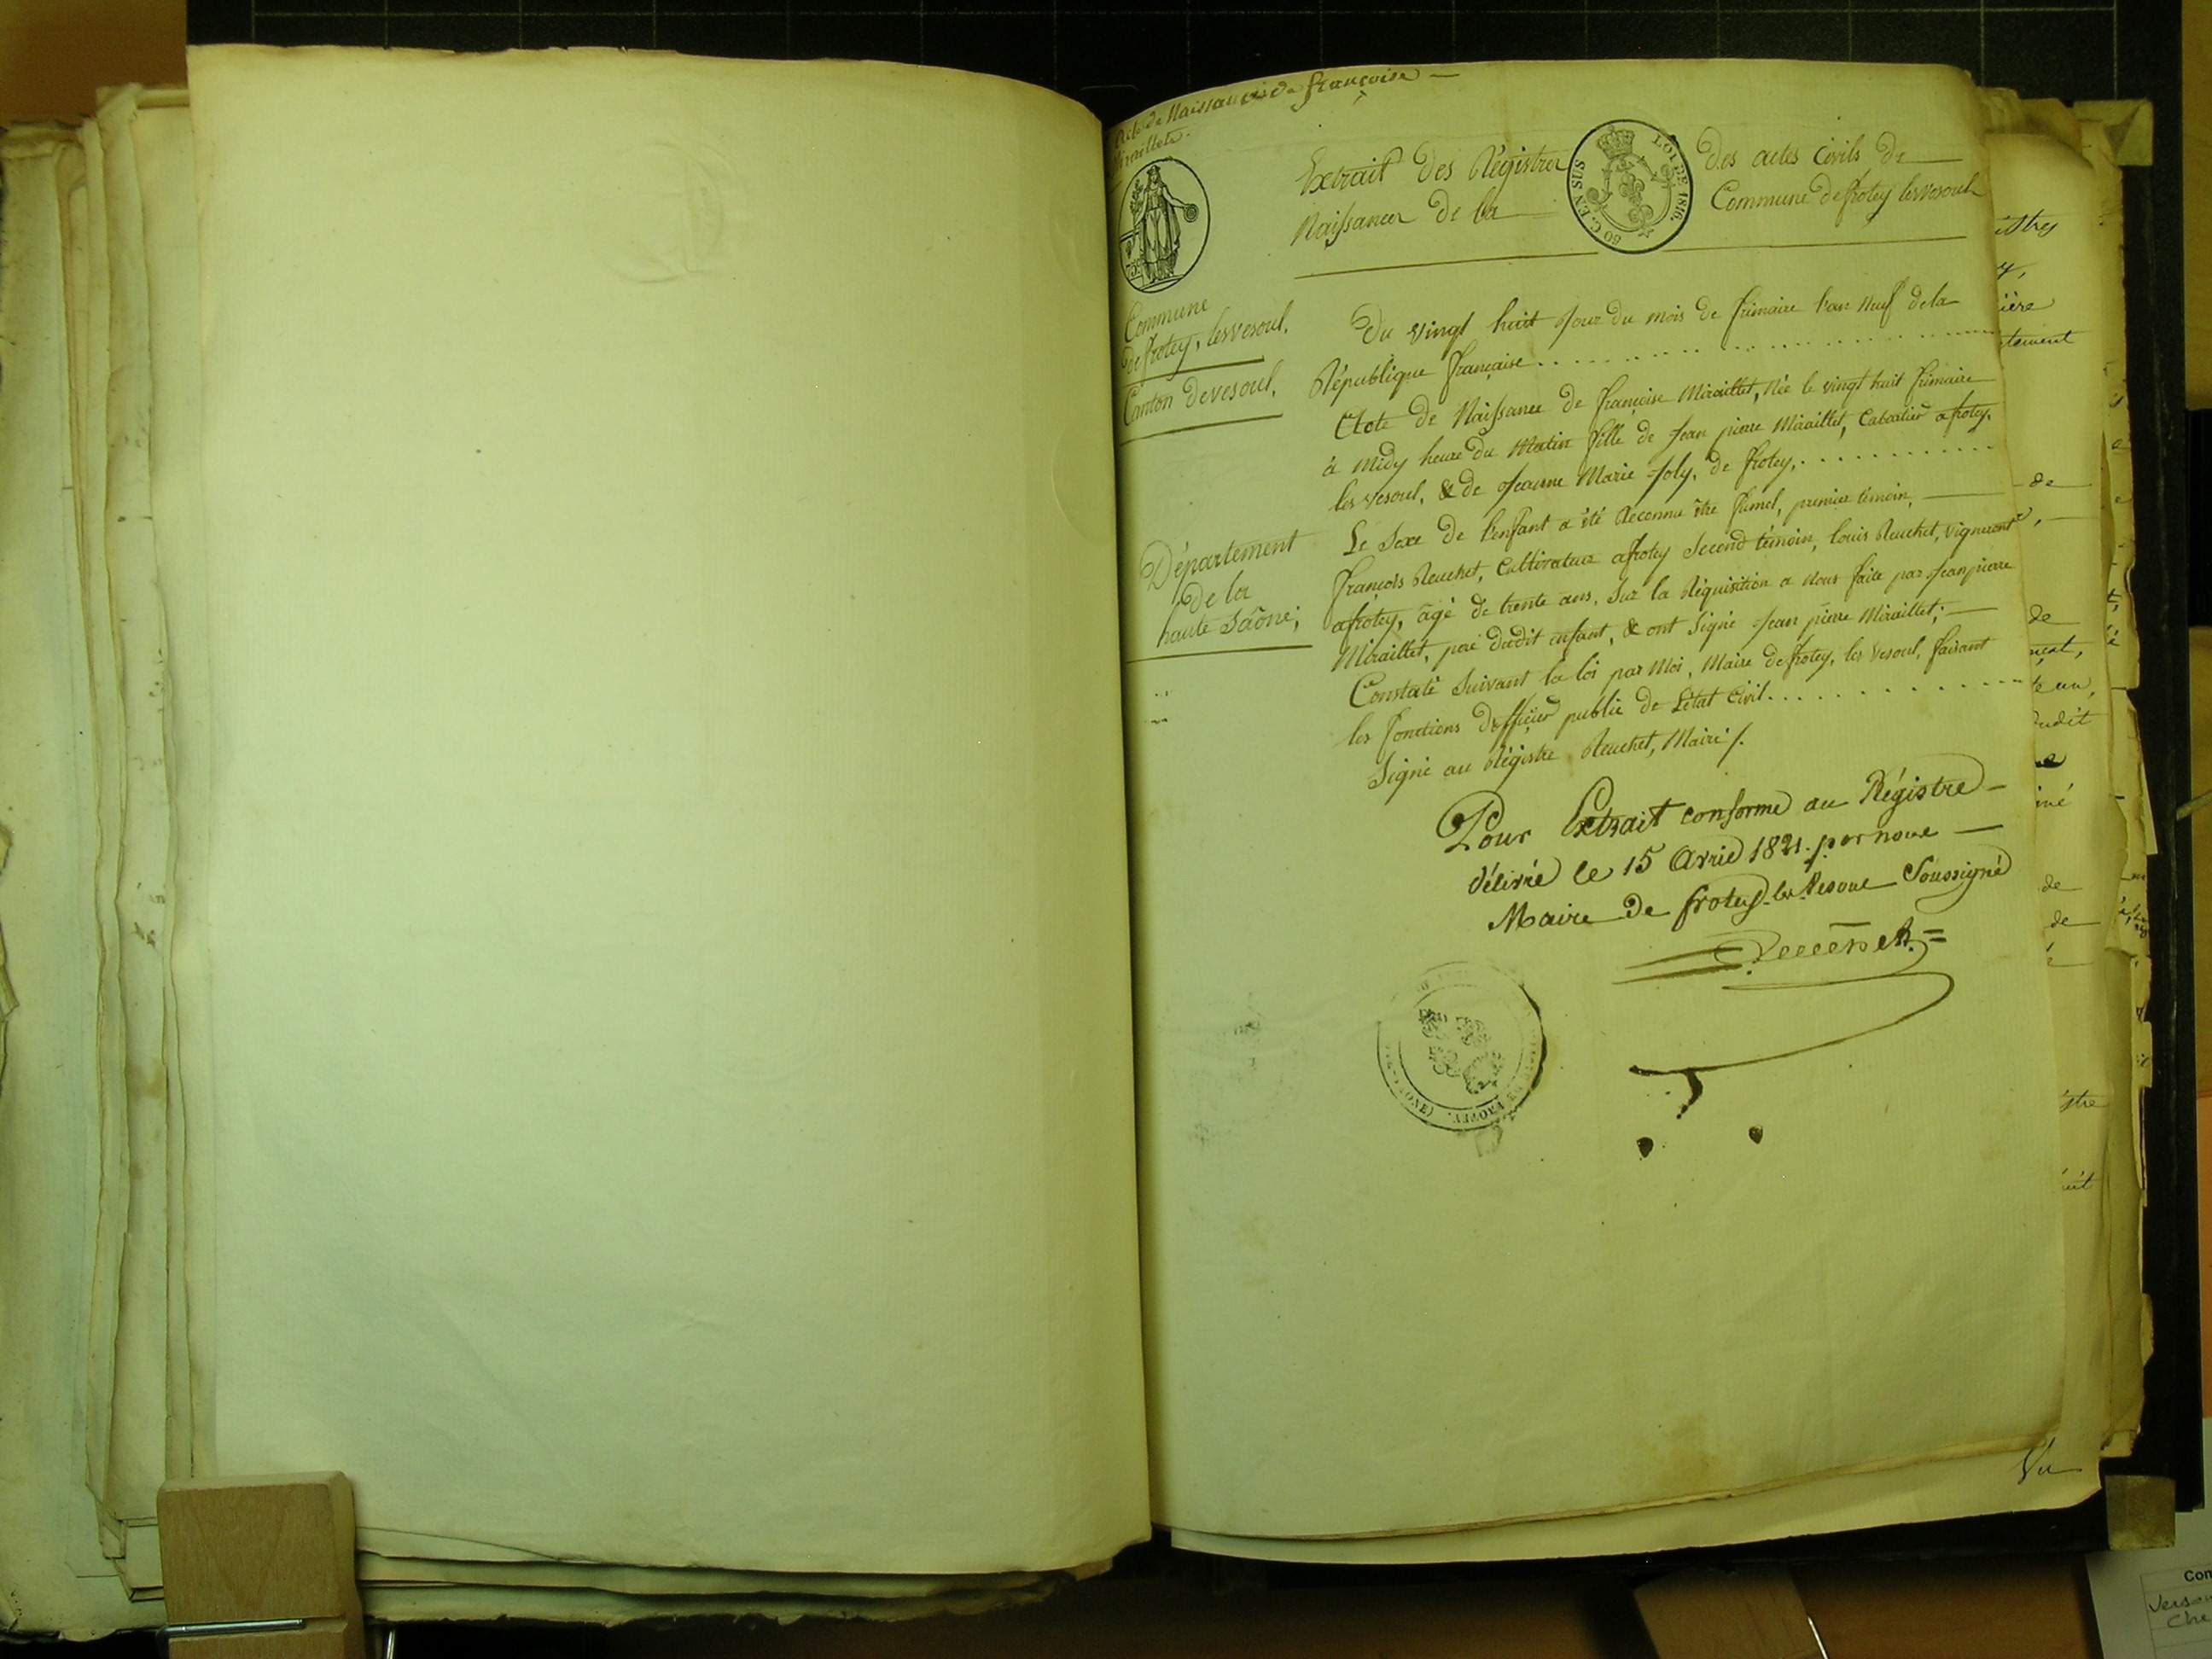 Acte de Naissance de françoise —
Miraillet.
Extrait des Régistres des actes Civils de
Naissances de la Commune de frotey les vesoul
60 C. EN SUS
LOI DE 1816.
Commune
de frotey, les vesoul.
Canton de vesoul.
Département
de la
haute Saône;
Du vingt huit Jour du mois de frimaire l'an Neuf de la
République française
Acte de Naissance de françoise Miraillet, Née le vingt huit frimaire
à Midy heure du Matin fille de Jean pierre Miraillet, Cabartier a frotey.
les vesoul, & de Jeanne Marie Joly, de frotey,
Le Sexe de l'enfant a été Reconnu être fumel, premier témoin,
françois Reuchet, Cultivateur a frotey Second témoin, louis Reuchet, vigneront
a frotey, âgé de trente ans, Sur la Réquisition a Nous faite par Jean pierre
Miraillet, peré dudit enfant, & ont Signé Jean pierre Miraillet; —
Constaté Suivant la loi par Moi, Maire de frotey, les vesoul, faisant
les fonctions d'officier public de L'état Civil.
Signé au Régistre Reuchet, Maire /.
Pour Extrait conforme au Régistre —
délivré le 15 Avril 1821. par nous —
Maire de frotey-les-Vesoul Soussigné
istre
ière
tement
de
de
ment,
te un,
dudit
iné
de
de
istre
Vu
Con